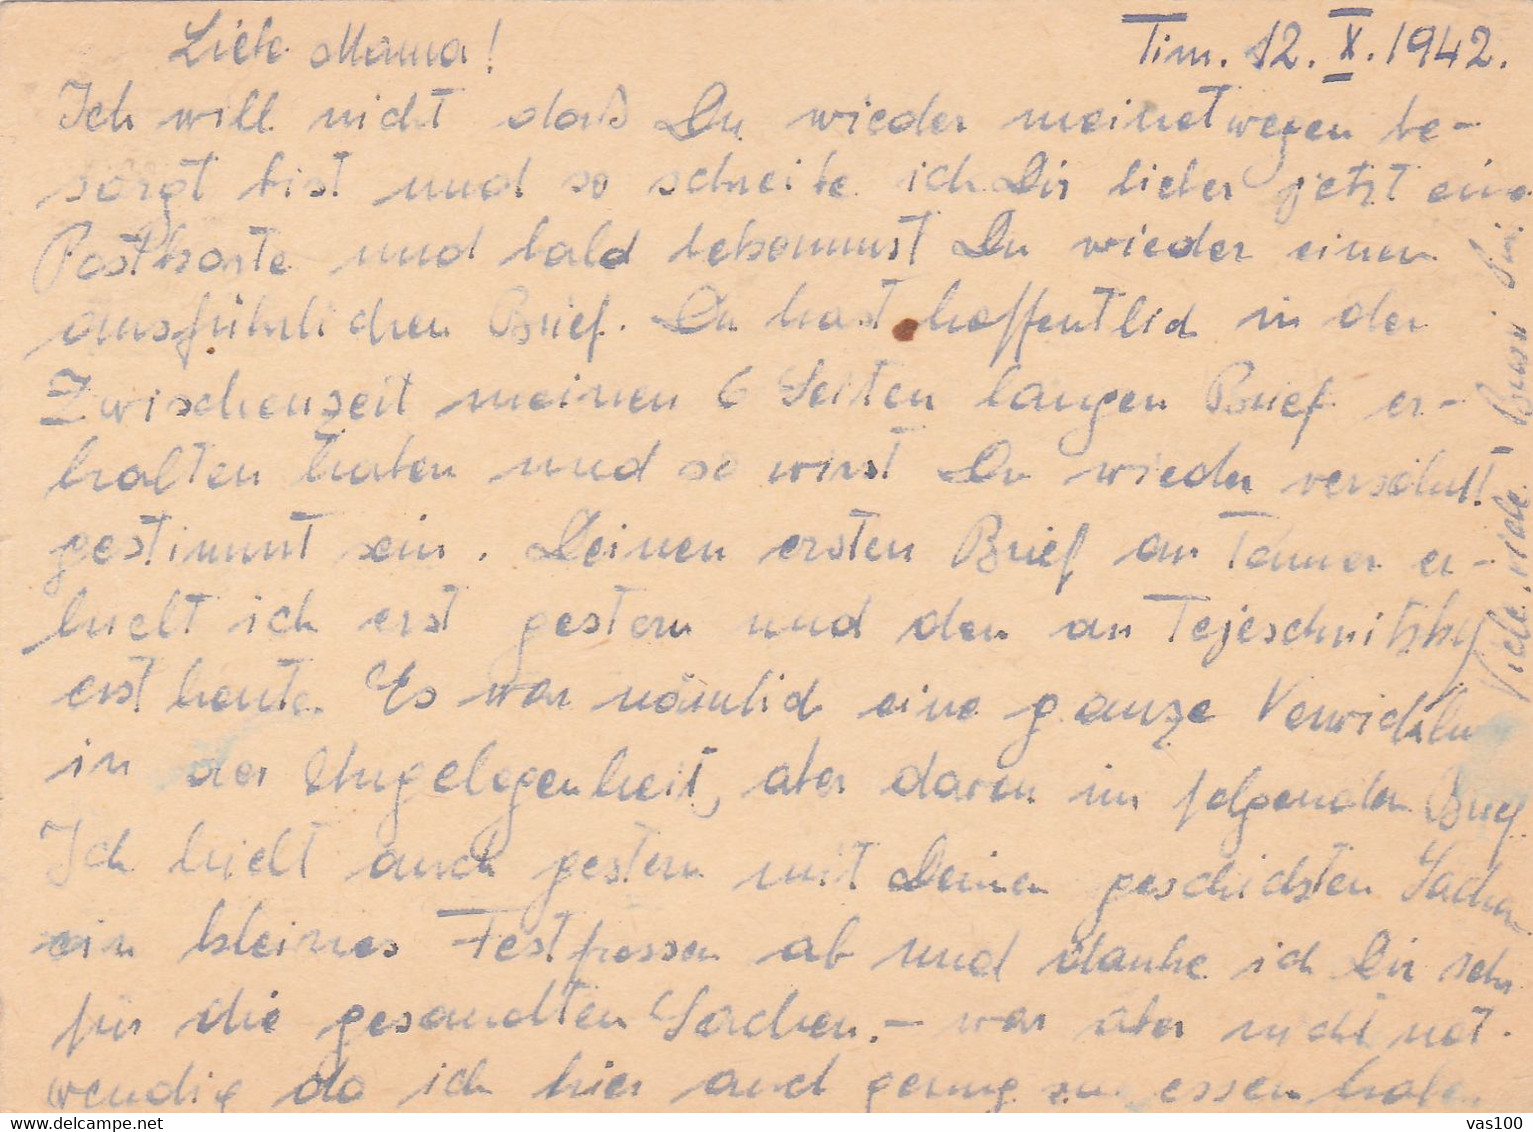 Liebe Mama! Tim. 12. X. 1942.
Ich will nicht daß Du wieder meinetwegen be-
sorgt bist und so schreibe ich Dir lieber jetzt eine
Postkarte und bald bekommst Du wieder einen
ausführlichen Brief. Du hast hoffentlich in der
Zwischenzeit meinen 6 Seiten langen Brief er-
halten haben und so wirst Du wieder versöhnt
gestimmt sein. Deinen ersten Brief an Tanner er-
hielt ich erst gestern und den an Tejeschnitzky
erst heute. Es war nämlich eine ganze Verwicklu
in der Angelegenheit, aber davon im folgenden Brief
Ich hielt auch gestern mit Deinen geschickten Sachen
ein kleines Festfressen ab und danke ich Dir sehr
für die gesandten Sachen. – war aber nicht not-
wendig da ich hier auch genug zu essen habe.
Viele, viele Bussi
vas100